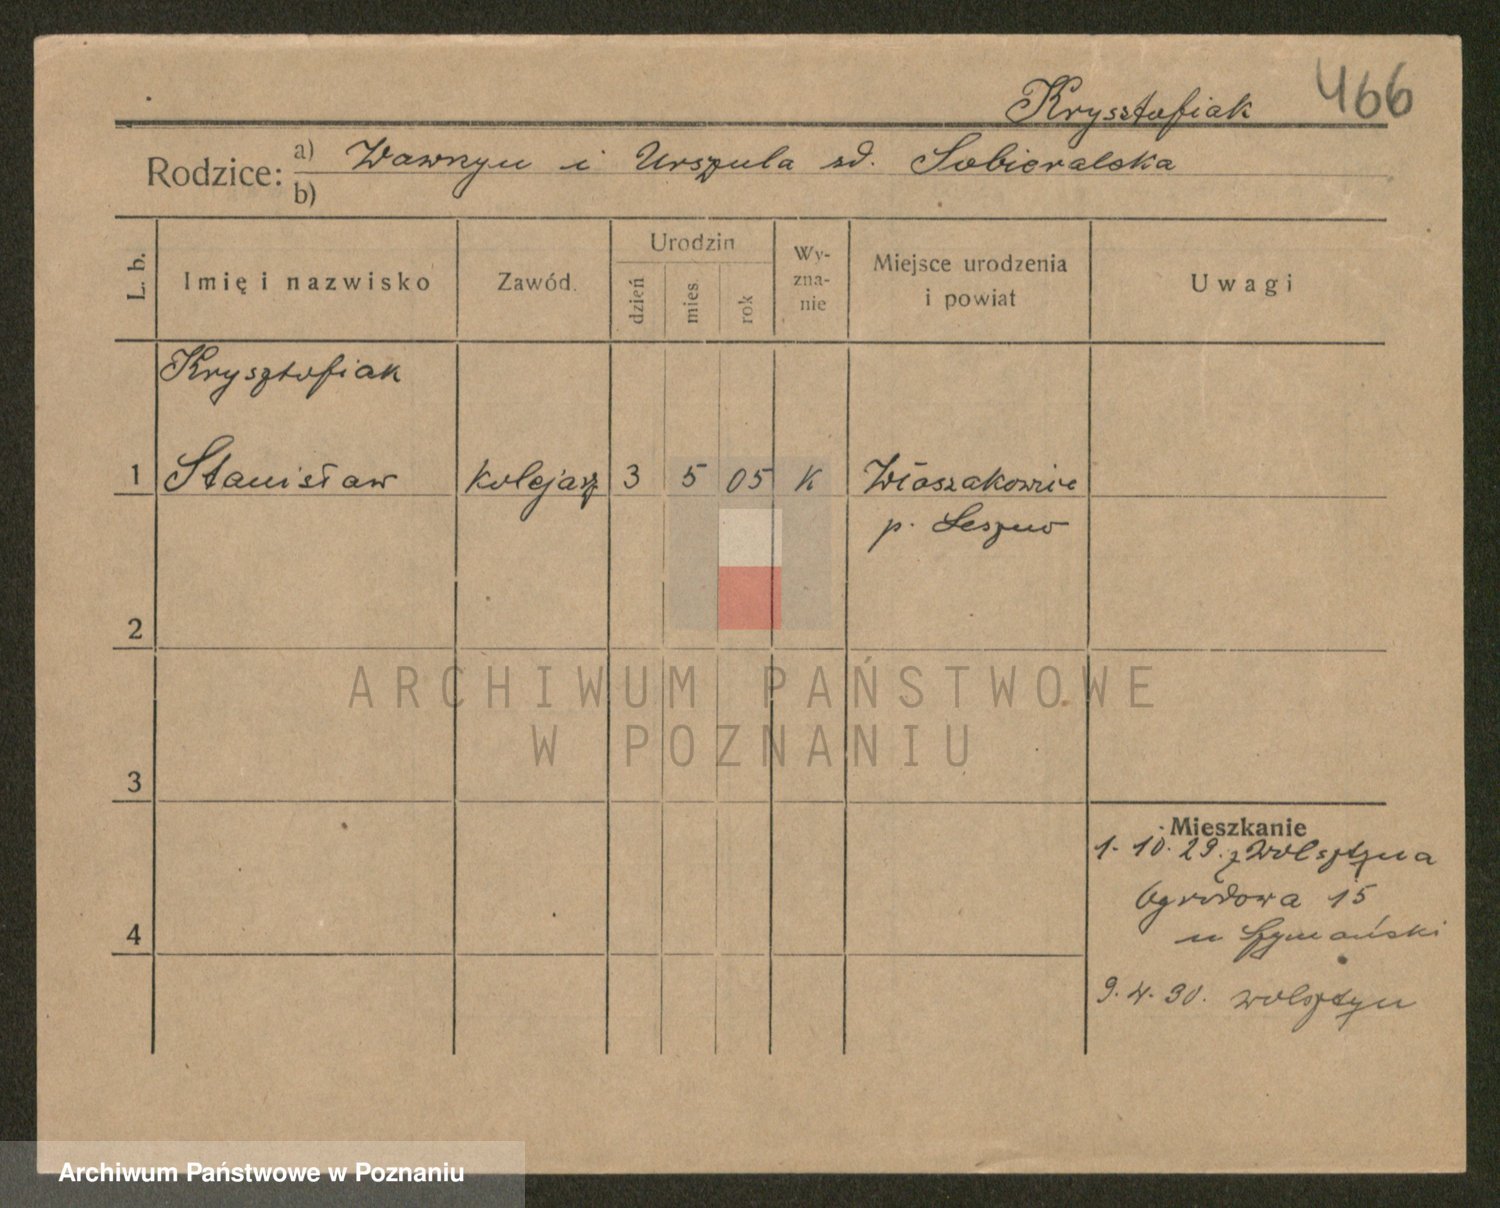 Krysztofiak 466
Rodzice: a) Wawrzyn i Urszula zd. Sobieralska
b)
L. b. Imię i nazwisko Zawód. Urodzin dzień mies. rok Wy- zna- nie Miejsce urodzenia i powiat Uwagi
Krysztofiak
1 Stanisław kolejarz 3 5 05 K Włoszakowice
p. Leszno
2
ARCHIWUM PAŃSTWOWE
W POZNANIU
3
Mieszkanie
1. 10. 29. z Wolsztyna
Ogrodowa 15
4
u Szymański
9. 4. 30. Wolsztyn
Archiwum Państwowe w Poznaniu